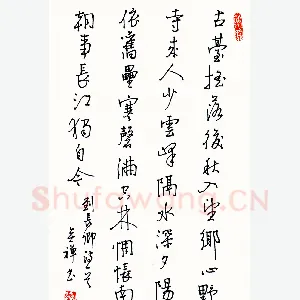 古臺摇落後秋入望鄉心野
寺来人少雲峰隔水深夕陽
依舊壘寒磬满空林惆悵南
朝事長江獨自今
刘長卿詩
禅书
Shufawang.CN